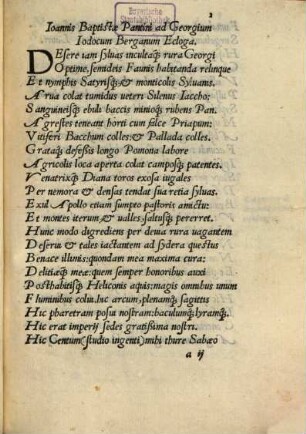 3
Ioannis Baptistæ Pantini ad Georgium
Iodocum Berganum Ecloga.
DEsere iam syluas incultaq; rura Georgi
Optime, semideis Faunis habitanda relinque
Et nymphis Satyrisq; & monticolis Syluanis.
Arua colat tumidus ueteri Silenus Iaccho:
Sanguineisq; ebuli baccis minioq; rubens Pan.
Agrestes teneant horti cum falce Priapum:
Vitiferi Bacchum colles: & Pallada colles.
Grataq; defessis longo Pomona labore
Agricolis loca aperta colat camposq; patentes.
Venatrixq; Diana toros exosa iugales
Per nemora & densas tendat sua retia syluas.
Exul Apollo etiam sumpto pastoris amictu:
Et montes iterum & ualles, saltusq; pererret.
Hunc modo digrediens per deuia rura uagantem
Deserui & tales iactantem ad sydera questus
Benace illinus: quondam mea maxima cura:
Delitiæq; meæ: quem semper honoribus auxi
Posthabitisq; Heliconis aquis: magis omnibus unum
Fluminibus colui. huc arcum, plenamq; sagittis
Hic pharetram posui nostram: baculumq; lyramq;.
Hic erat imperij sedes gratissima nostri.
Hic Centum (studio ingenti) mihi thure Sabæo
a ij